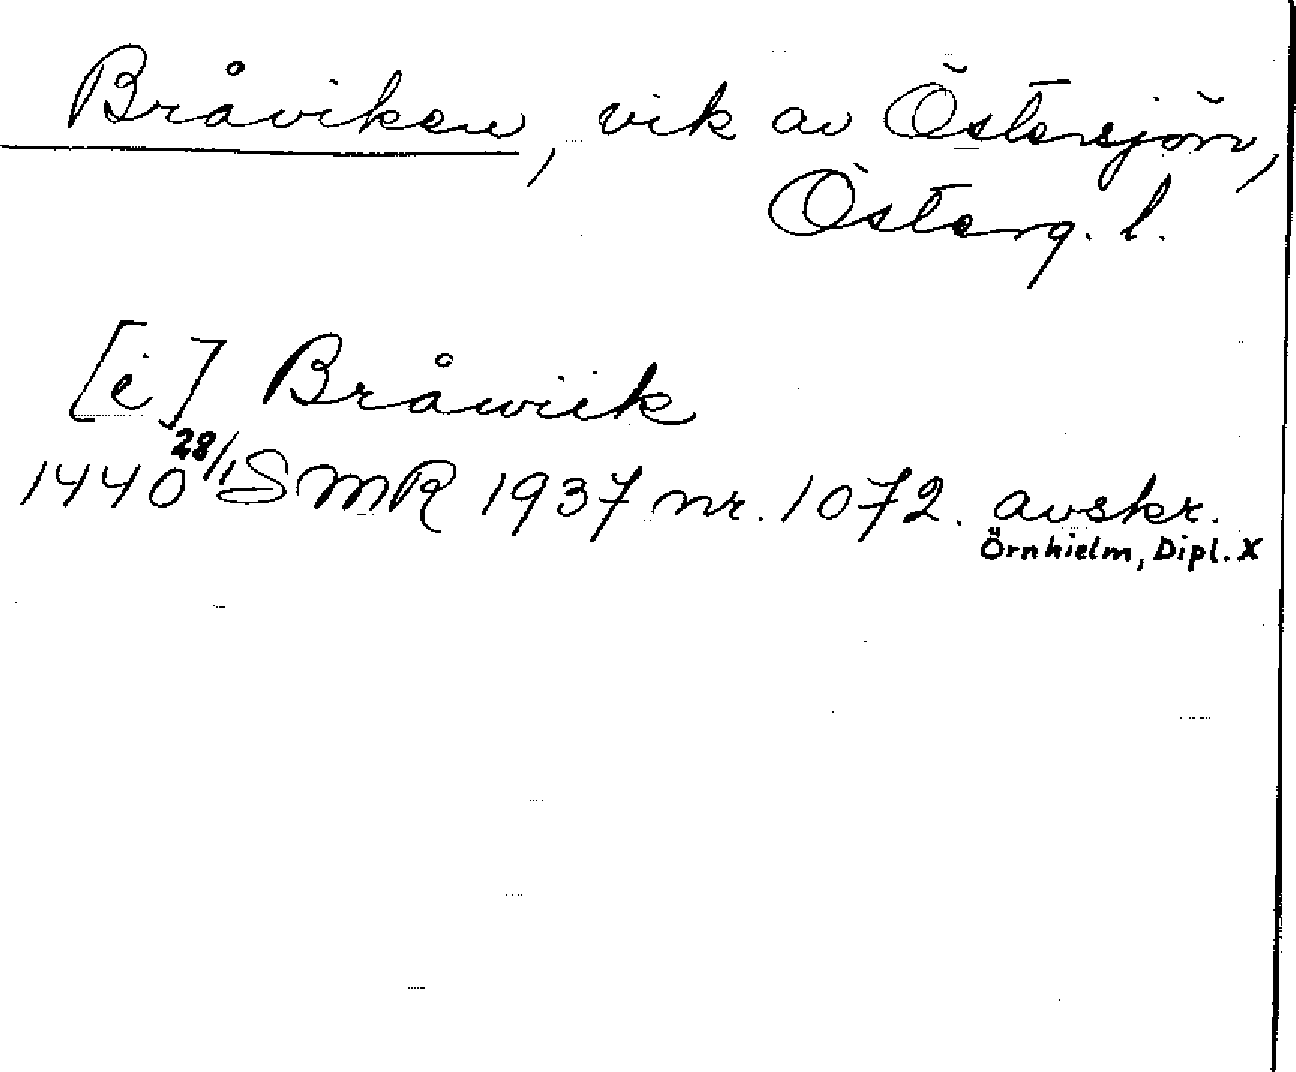 Bråviken, vik av Östersjön,
Österg. l.
[i] Bråwiik
1440 28/1 SMR 1937 nr. 1072. avskr.
Örnhielm, Dipl. X